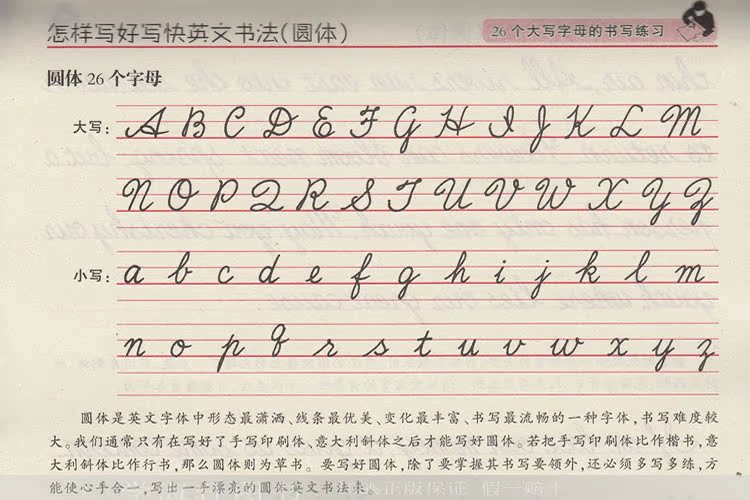 怎样写好写快英文书法(圆体)
26个大写字母的书写练习
圆体26个字母
大写: A B C D E F G H I J K L M
N O P Q R S T U V W X Y Z
小写: a b c d e f g h i j k l m
n o p q r s t u v w x y z
圆体是英文字体中形态最潇洒、线条最优美、变化最丰富、书写最流畅的一种字体,书写难度较
大。我们通常只有在写好了手写印刷体、意大利斜体之后才能写好圆体。若把手写印刷体比作楷书,意
大利斜体比作行书,那么圆体则为草书。要写好圆体,除了要掌握其书写要领外,还必须多写多练,方
能使心手合一,写出一手漂亮的圆体英文书法来。
正版保证 假一赔十